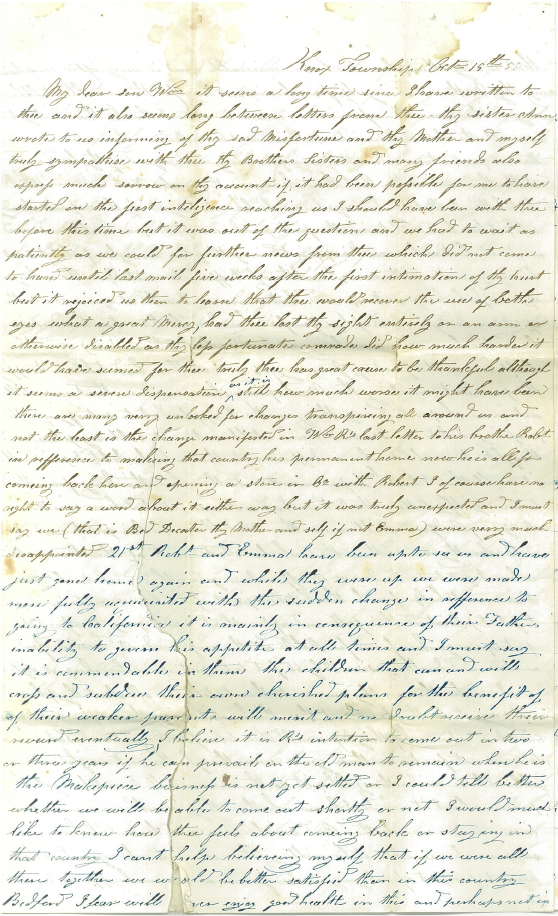 Knox Township Oct 15th 53
My dear son Wm it seems a long time since I have written to
thee and it also seems long between letters from thee thy sister Ann
wrote to us informing of thy sad Misfortune and thy Mother and myself
truly sympathise with thee thy Brothers Sisters and many friends also
express much sorrow on thy account if it had been possible for me to have
started on the first inteligence reaching us I should have been with thee
before this time but it was out of the question and we had to wait as
patiently as we could for further news from thee which did not come
to hand until last mail five weeks after the first intimation of thy hurt
but it rejoiced us then to learn that thou would recover the use of both
eyes what a great Mercy had thee lost thy sight entirely or an arm or
otherwise disabled as thy less fortunate comrade did how much harder it
would have seemed for thee truly thee has great cause to be thankful although
it seems a severe dispensation as it is still how much worse it might have been
there are many very unlooked for changes transpireing all around us and
not the least is the change manifested in Wm Rs last letter to his brothe Robt
in refference to making that country his permanent home now he is all for
comeing back here and opening a store in Bd with Robert I of course have no
right to say a word about it either way but it was truly unexpected and I must
say we (that is Bed Decater thy Mother and self if not Emma) were very much
disappointed 21st Robt and Emma have been up to see us and have
just gone home again and while they were up we were made
more fully acquainted with the sudden change in refference to
going to California it is mainly in consequence of their Fathers
inability to govern his appetite at all times and I must say
it is commendable in them the children that can and will
cross and subdue their own cherished plans for the benefit of
of their weaker parents will merit and no doubt receive their
reward eventually, I believe it is Rs intention to come out in two
or three years if he can prevail on the old man to remain when he is
the Makepiece buisness is not yet settled or I could tell better
whether we will be able to come out shortly or not I would much
like to know how thee feels about comeing back or staying in
that country I cant help believeing myself that if we were all
there together we would be better satisfied than in this country
Bedford I fear will never enjoy good health in this and perhaps not in